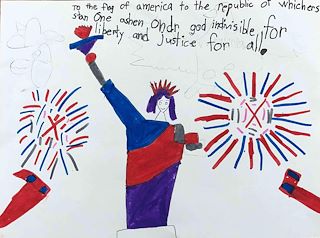 To the flag of america to the republic of whichers
stan One ashen, Ondr, god indivisible, for
liberty and justice for all.